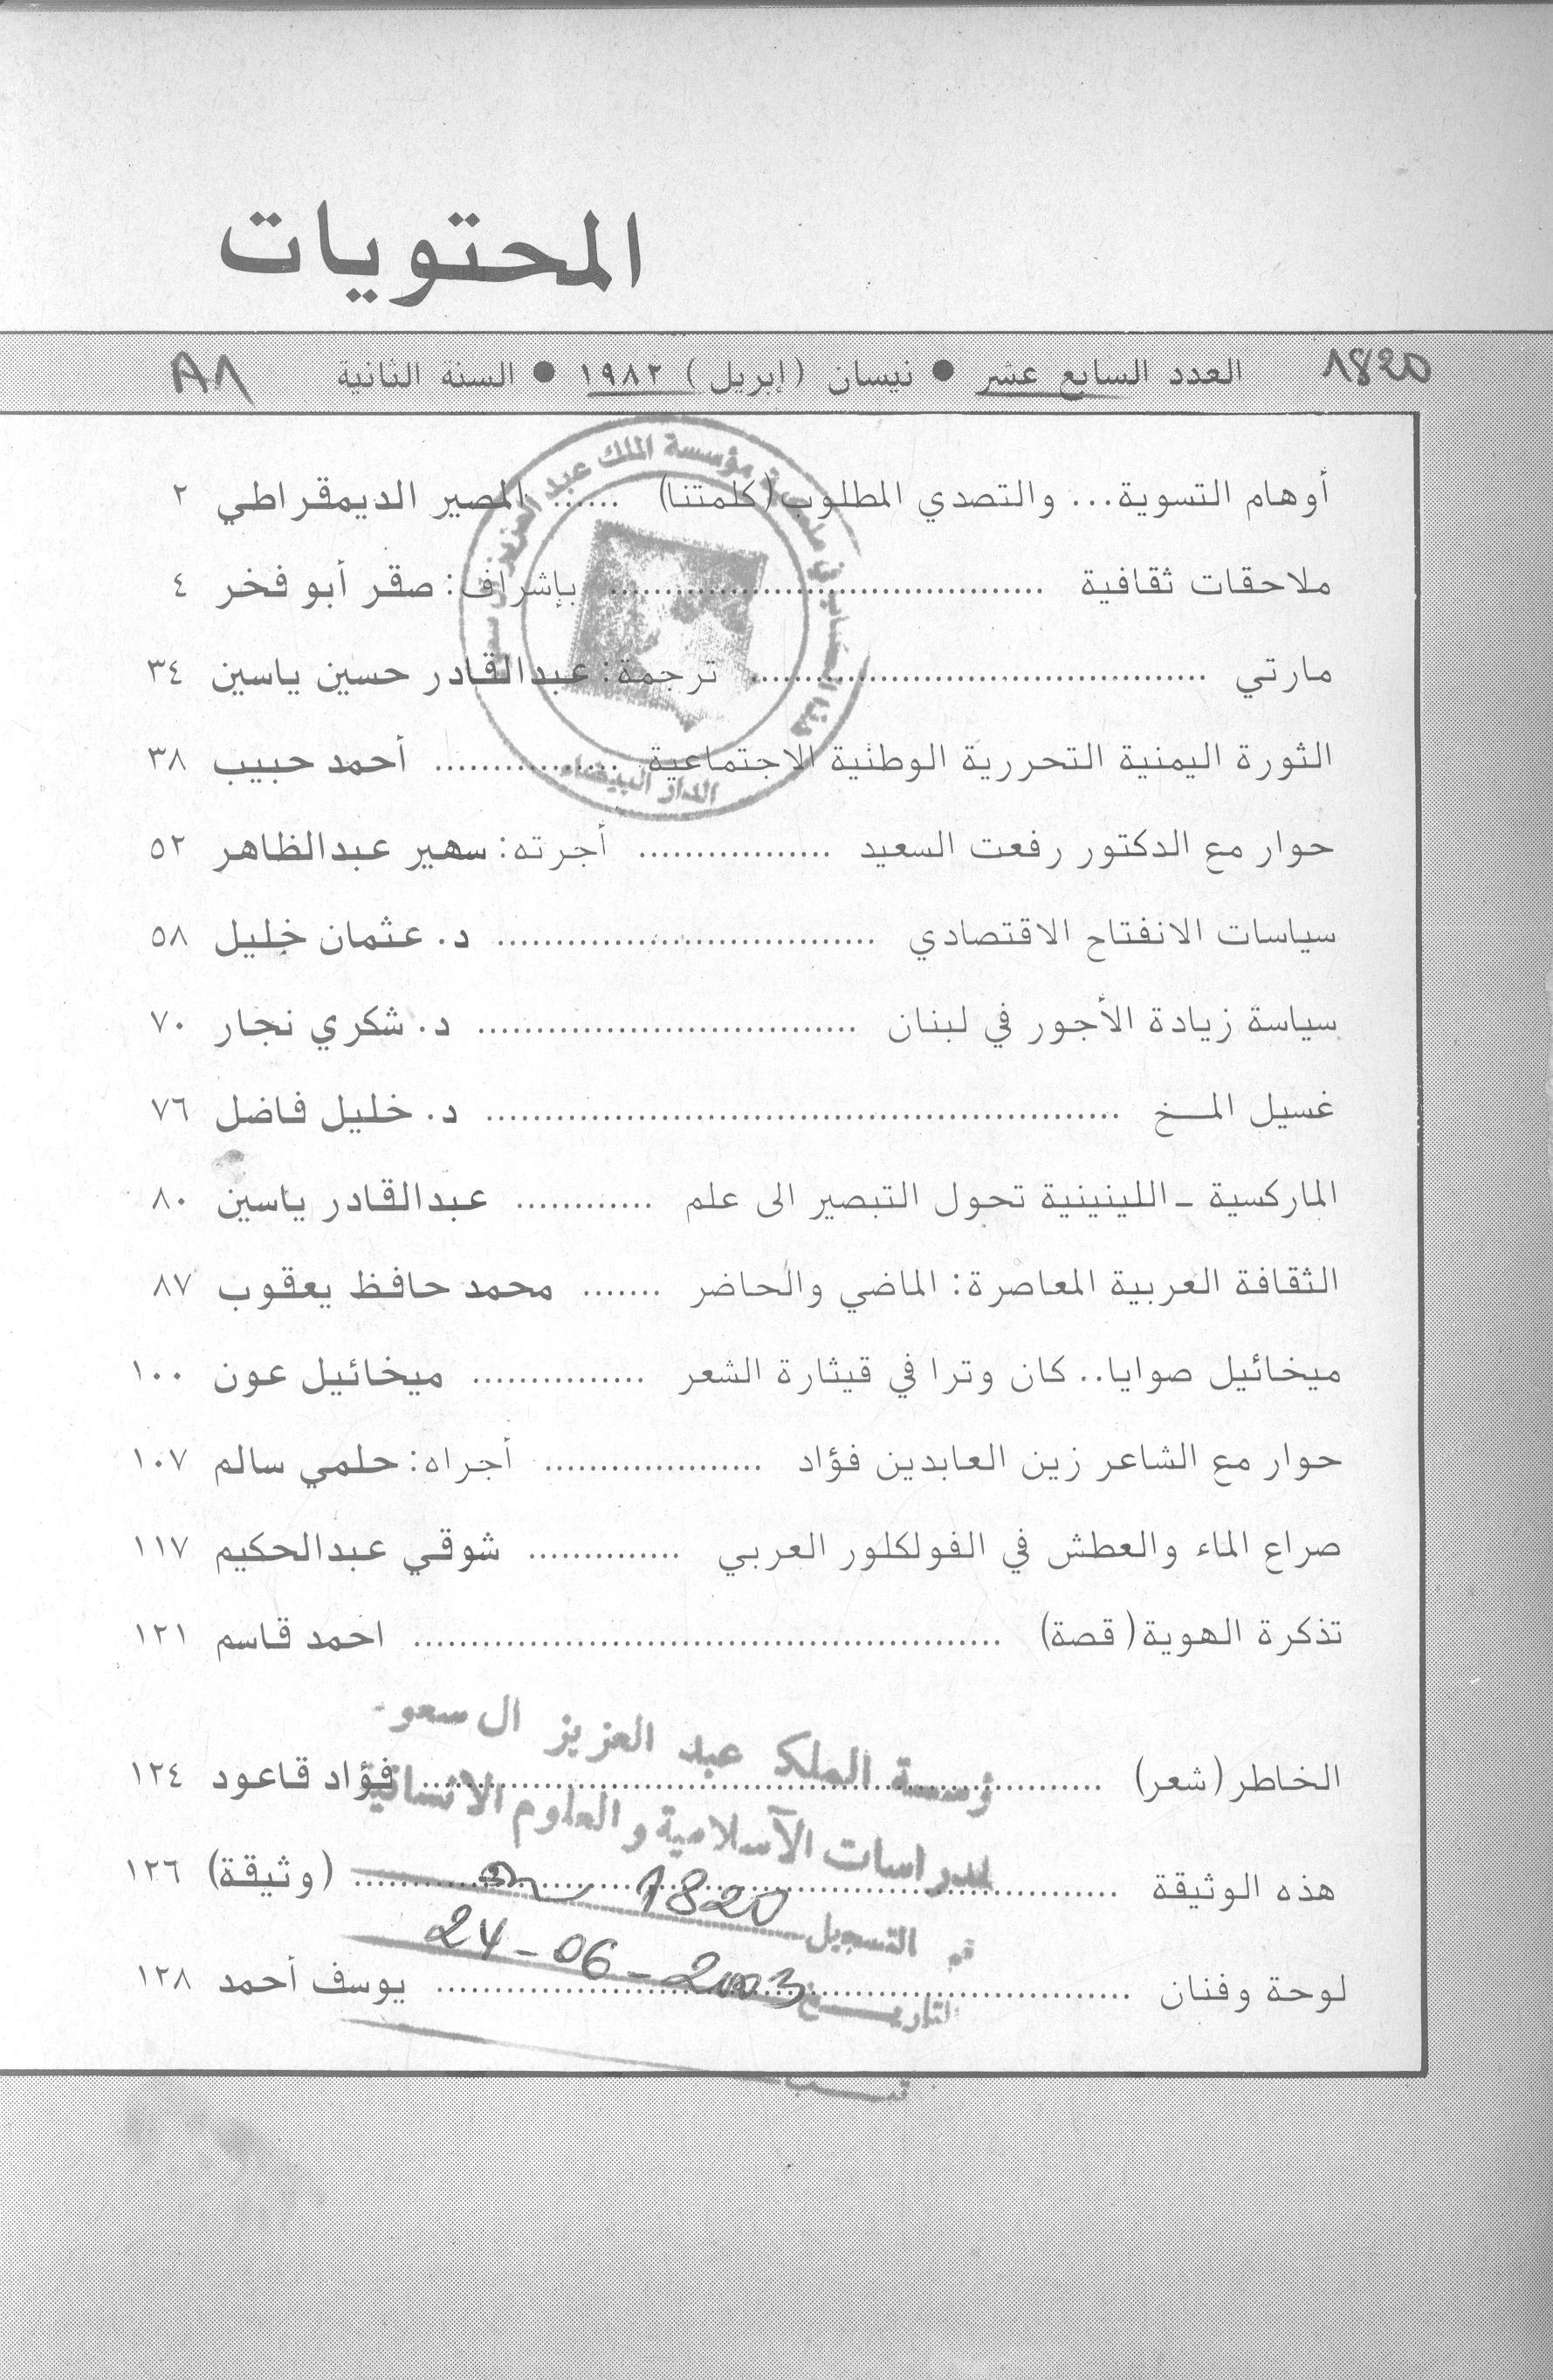 المحتويات
1820 العدد السابع عشر ● نيسان (إبريل) ١٩٨٢ ● السنة الثانية A1
أوهام التسوية... والتصدي المطلوب (كلمتنا) ...... المصير الديمقراطي ٢
ملاحقات ثقافية ...... بإشراف: صقر أبو فخر ٤
مارتي ...... ترجمة: عبدالقادر حسين ياسين ٣٤
الثورة اليمنية التحررية الوطنية الاجتماعية ...... أحمد حبيب ٣٨
حوار مع الدكتور رفعت السعيد ...... أجرته: سهير عبدالظاهر ٥٢
سياسات الانفتاح الاقتصادي ...... د. عثمان خليل ٥٨
سياسة زيادة الأجور في لبنان ...... د. شكري نجار ٧٠
غسيل المخ ...... د. خليل فاضل ٧٦
الماركسية - اللينينية تحول التبصير الى علم ...... عبدالقادر ياسين ٨٠
الثقافة العربية المعاصرة: الماضي والحاضر ...... محمد حافظ يعقوب ٨٧
ميخائيل صوايا.. كان وترا في قيثارة الشعر ...... ميخائيل عون ١٠٠
حوار مع الشاعر زين العابدين فؤاد ...... أجراه: حلمي سالم ١٠٧
صراع الماء والعطش في الفولكلور العربي ...... شوقي عبدالحكيم ١١٧
تذكرة الهوية (قصة) ...... احمد قاسم ١٢١
الخاطر (شعر) ...... فؤاد قاعود ١٢٤
هذه الوثيقة ...... (وثيقة) ١٢٦
لوحة وفنان ...... يوسف أحمد ١٢٨
مؤسسة الملك عبد العزيز
الدار البيضاء
ؤسسة الملك عبد العزيز ال سعو
لدراسات الآسلامية و العلوم الانسانية
قم التسجيل 1820
التاريخ 24-06-2003